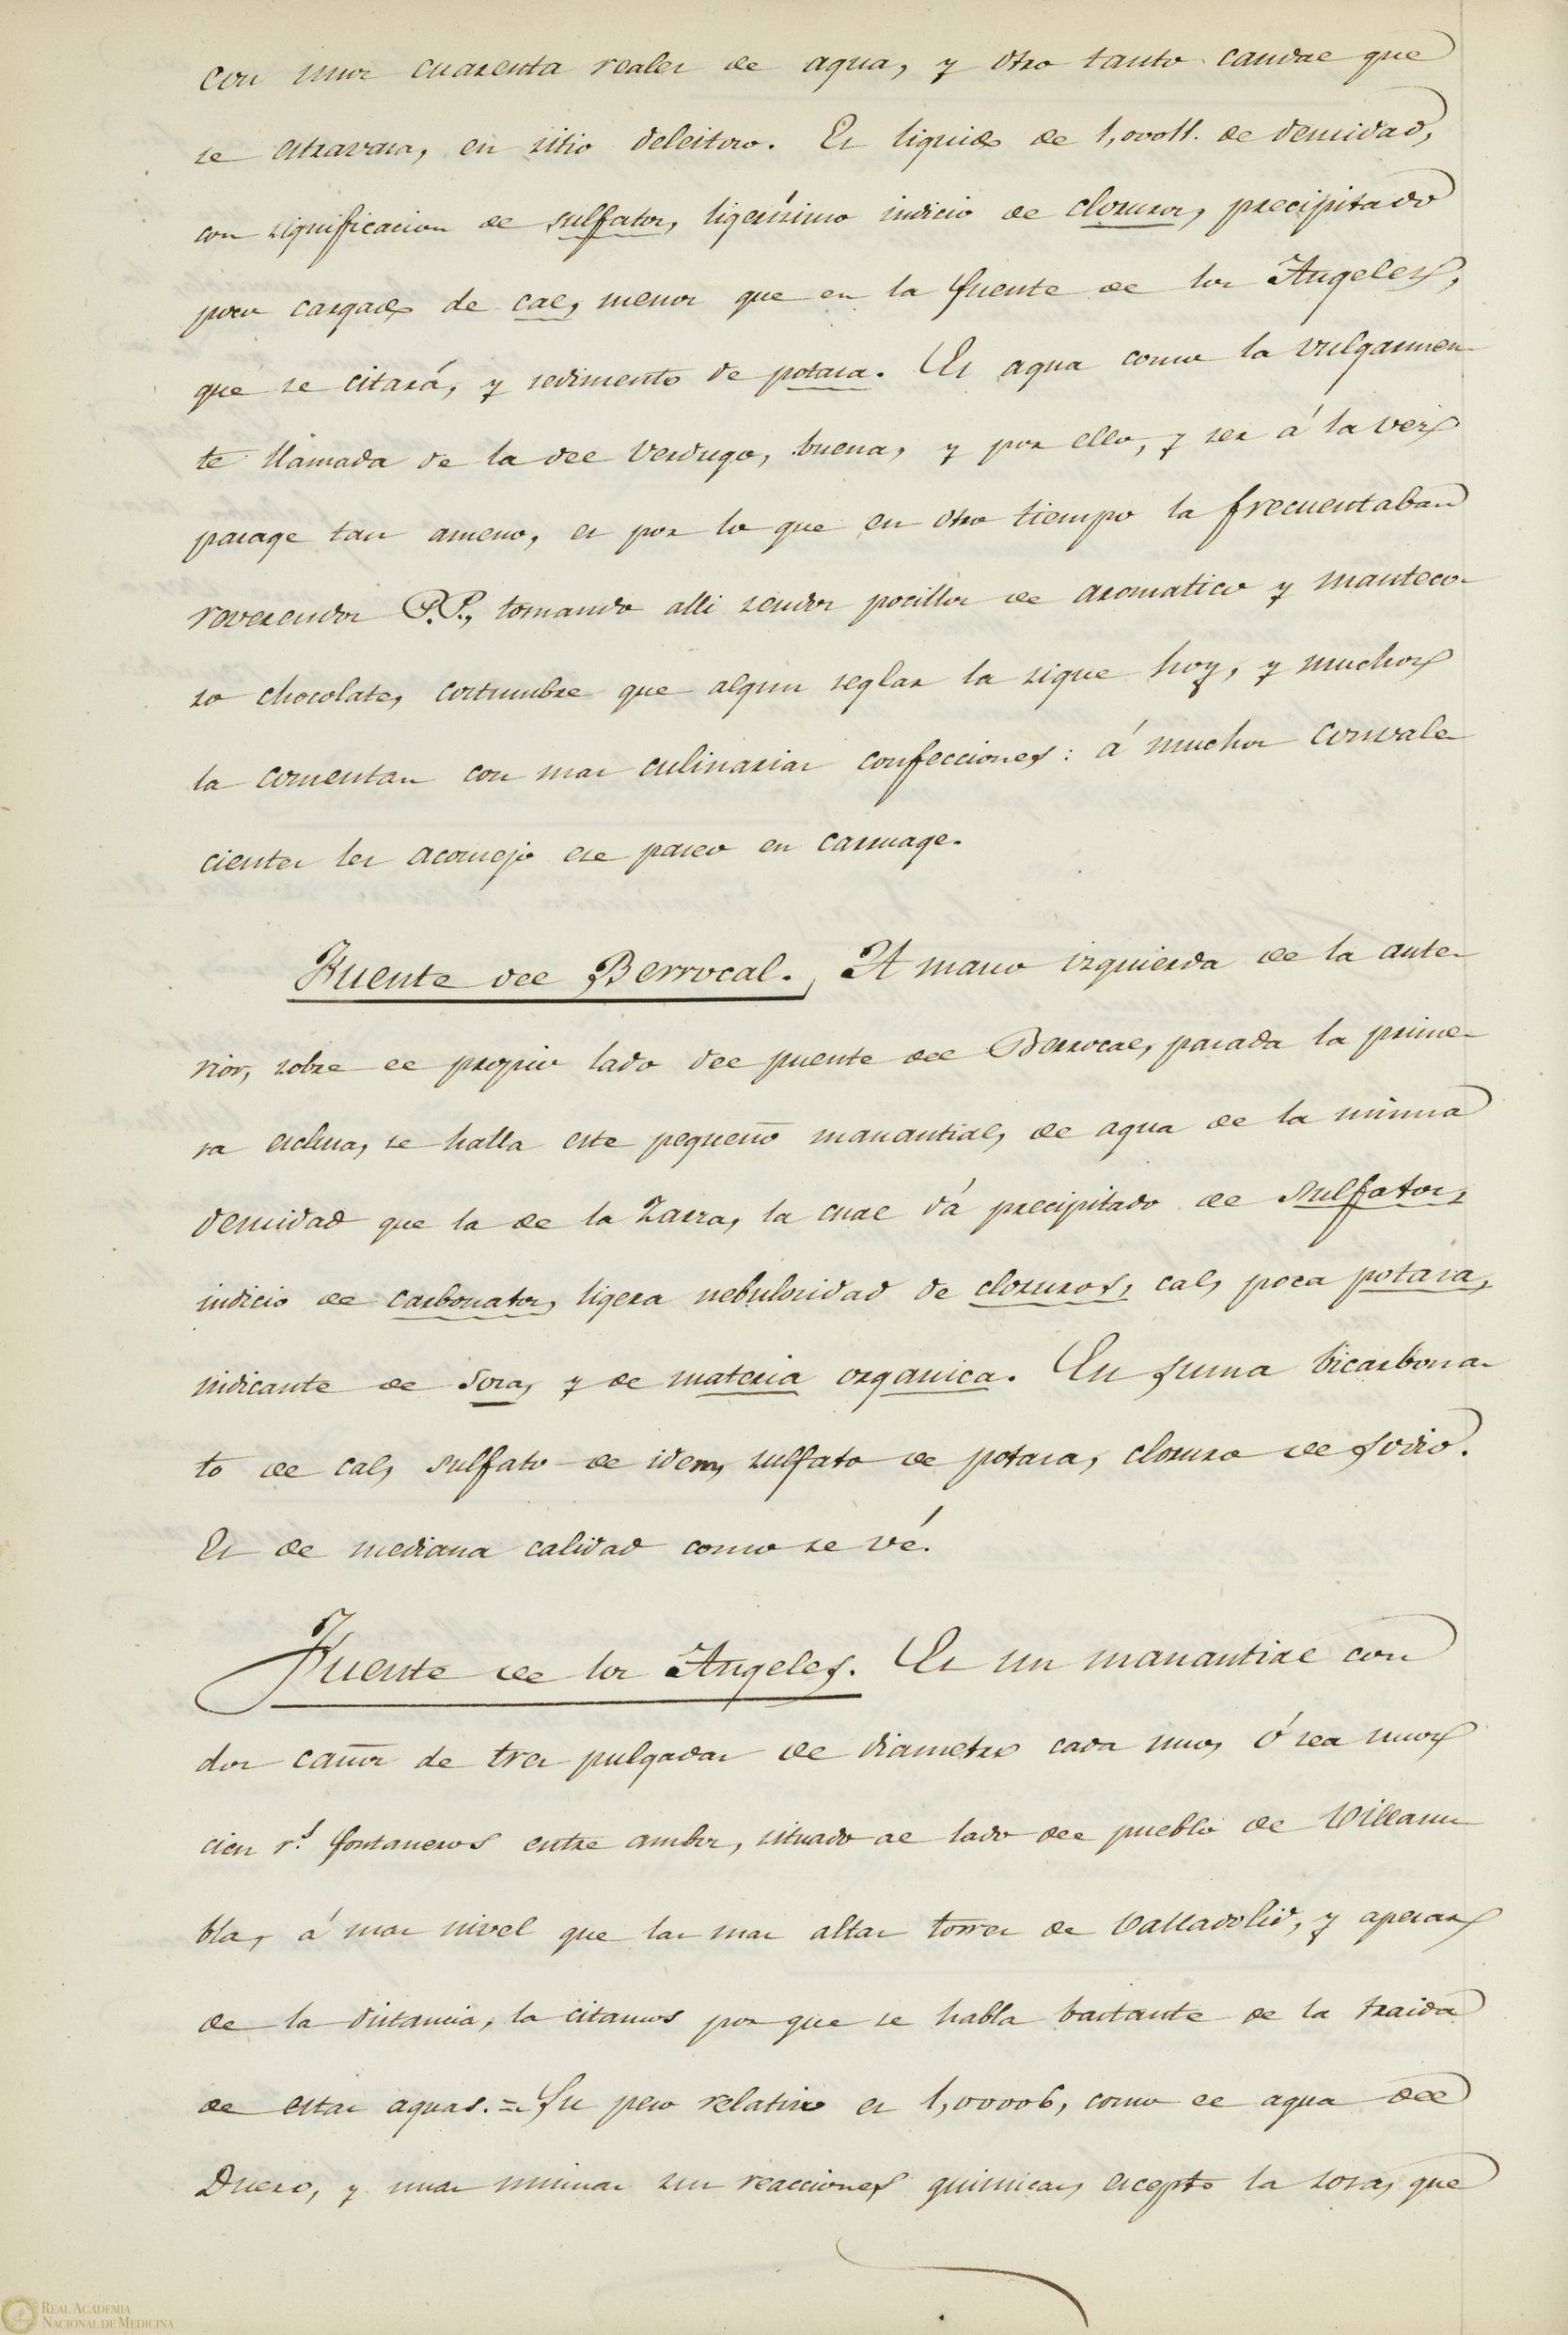 con unos cuarenta reales de agua, y otro tanto caudal que
se estravasa, en sitio deleitoso. Es liquido de 1,0011. de densidad,
con significacion de sulfatos, ligerísimo indicio de cloruros, precipitado
poco cargado de cal, menor que en la fuente de los Angeles,
que se citará, y sedimento de potasa. Es agua como la vulgarmen-
te llamada de la del Verdugo, buena, y por ello, y ser á la vez
parage tan ameno, es por lo que en otro tiempo la frecuentaban
reverendos P.P., tomando alli sendos pocillos de aromatico y manteco-
so chocolate, costumbre que algun seglar la sigue hoy, y muchos
la comentan con mas culinarias confecciones: á muchos convale
cientes les aconsejo ese paseo en carruage.
Fuente del Berrocal. A mano izquierda de la ante-
rior, sobre el propio lado del puente del Berrocal, pasada la prime-
ra esclusa, se halla este pequeño manantial, de agua de la misma
densidad que la de la Zarza, la cual dá precipitado de sulfatos,
indicio de carbonatos, ligera nebulosidad de cloruros, cal, poca potasa,
indicante de sosa, y de materia organica. En suma bicarbona-
to de cal, sulfato de idem, sulfato de potasa, cloruro de sodio.
Es de mediana calidad como se vé.
Fuente de los Angeles. Es un manantial con
dos caños de tres pulgadas de diametro cada uno, ó sea unos
cien r.s fontaneros entre ambos, situado al lado del pueblo de Villanu
bla, á mas nivel que las mas altas torres de Valladolid, y apesar
de la distancia, la citamos por que se habla bastante de la traida
de estas aguas. = Su peso relativo es 1,00006, como el agua del
Duero, y unas mismas sus reacciones quimicas, escepto la sosa, que
REAL ACADEMIA
NACIONAL DE MEDICINA